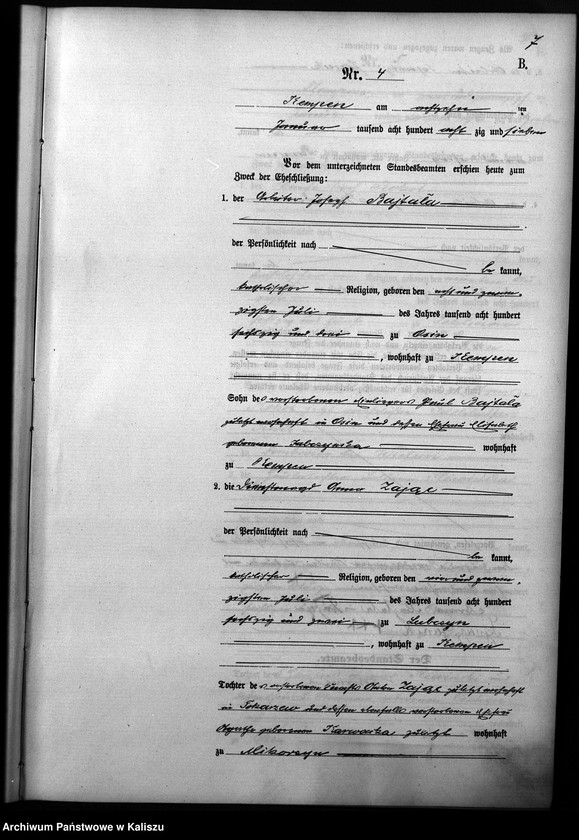 7
B.
Nr. 4
Kempen am achtzehn ten
Januar tausend acht hundert acht zig und sieben
Vor dem unterzeichneten Standesbeamten erschien heute zum
Zweck der Eheschließung:
1. der Arbeiter Joseph Bajtala
der Persönlichkeit nach
be kannt,
katholischer Religion, geboren den acht und zwan-
zigsten Juli des Jahres tausend acht hundert
sechszig und drei zu Osin
, wohnhaft zu Kempen
Sohn des verstorbenen Paul Bajtala
zuletzt wohnhaft in Osin und dessen Ehefrau Elisabeth
geborenen wohnhaft
zu Kempen
2. die Dienstmagd Anna Zając
der Persönlichkeit nach
be kannt,
katholischer Religion, geboren den vier und zwan-
zigsten Juli des Jahres tausend acht hundert
sechszig und zwei zu
, wohnhaft zu Kempen
Tochter des verstorbenen Zając zuletzt wohnhaft
in Tokarzew und dessen ebenfalls verstorbenen Ehefrau
geborenen Karwacka zuletzt wohnhaft
zu Mikorzyn
Archiwum Państwowe w Kaliszu